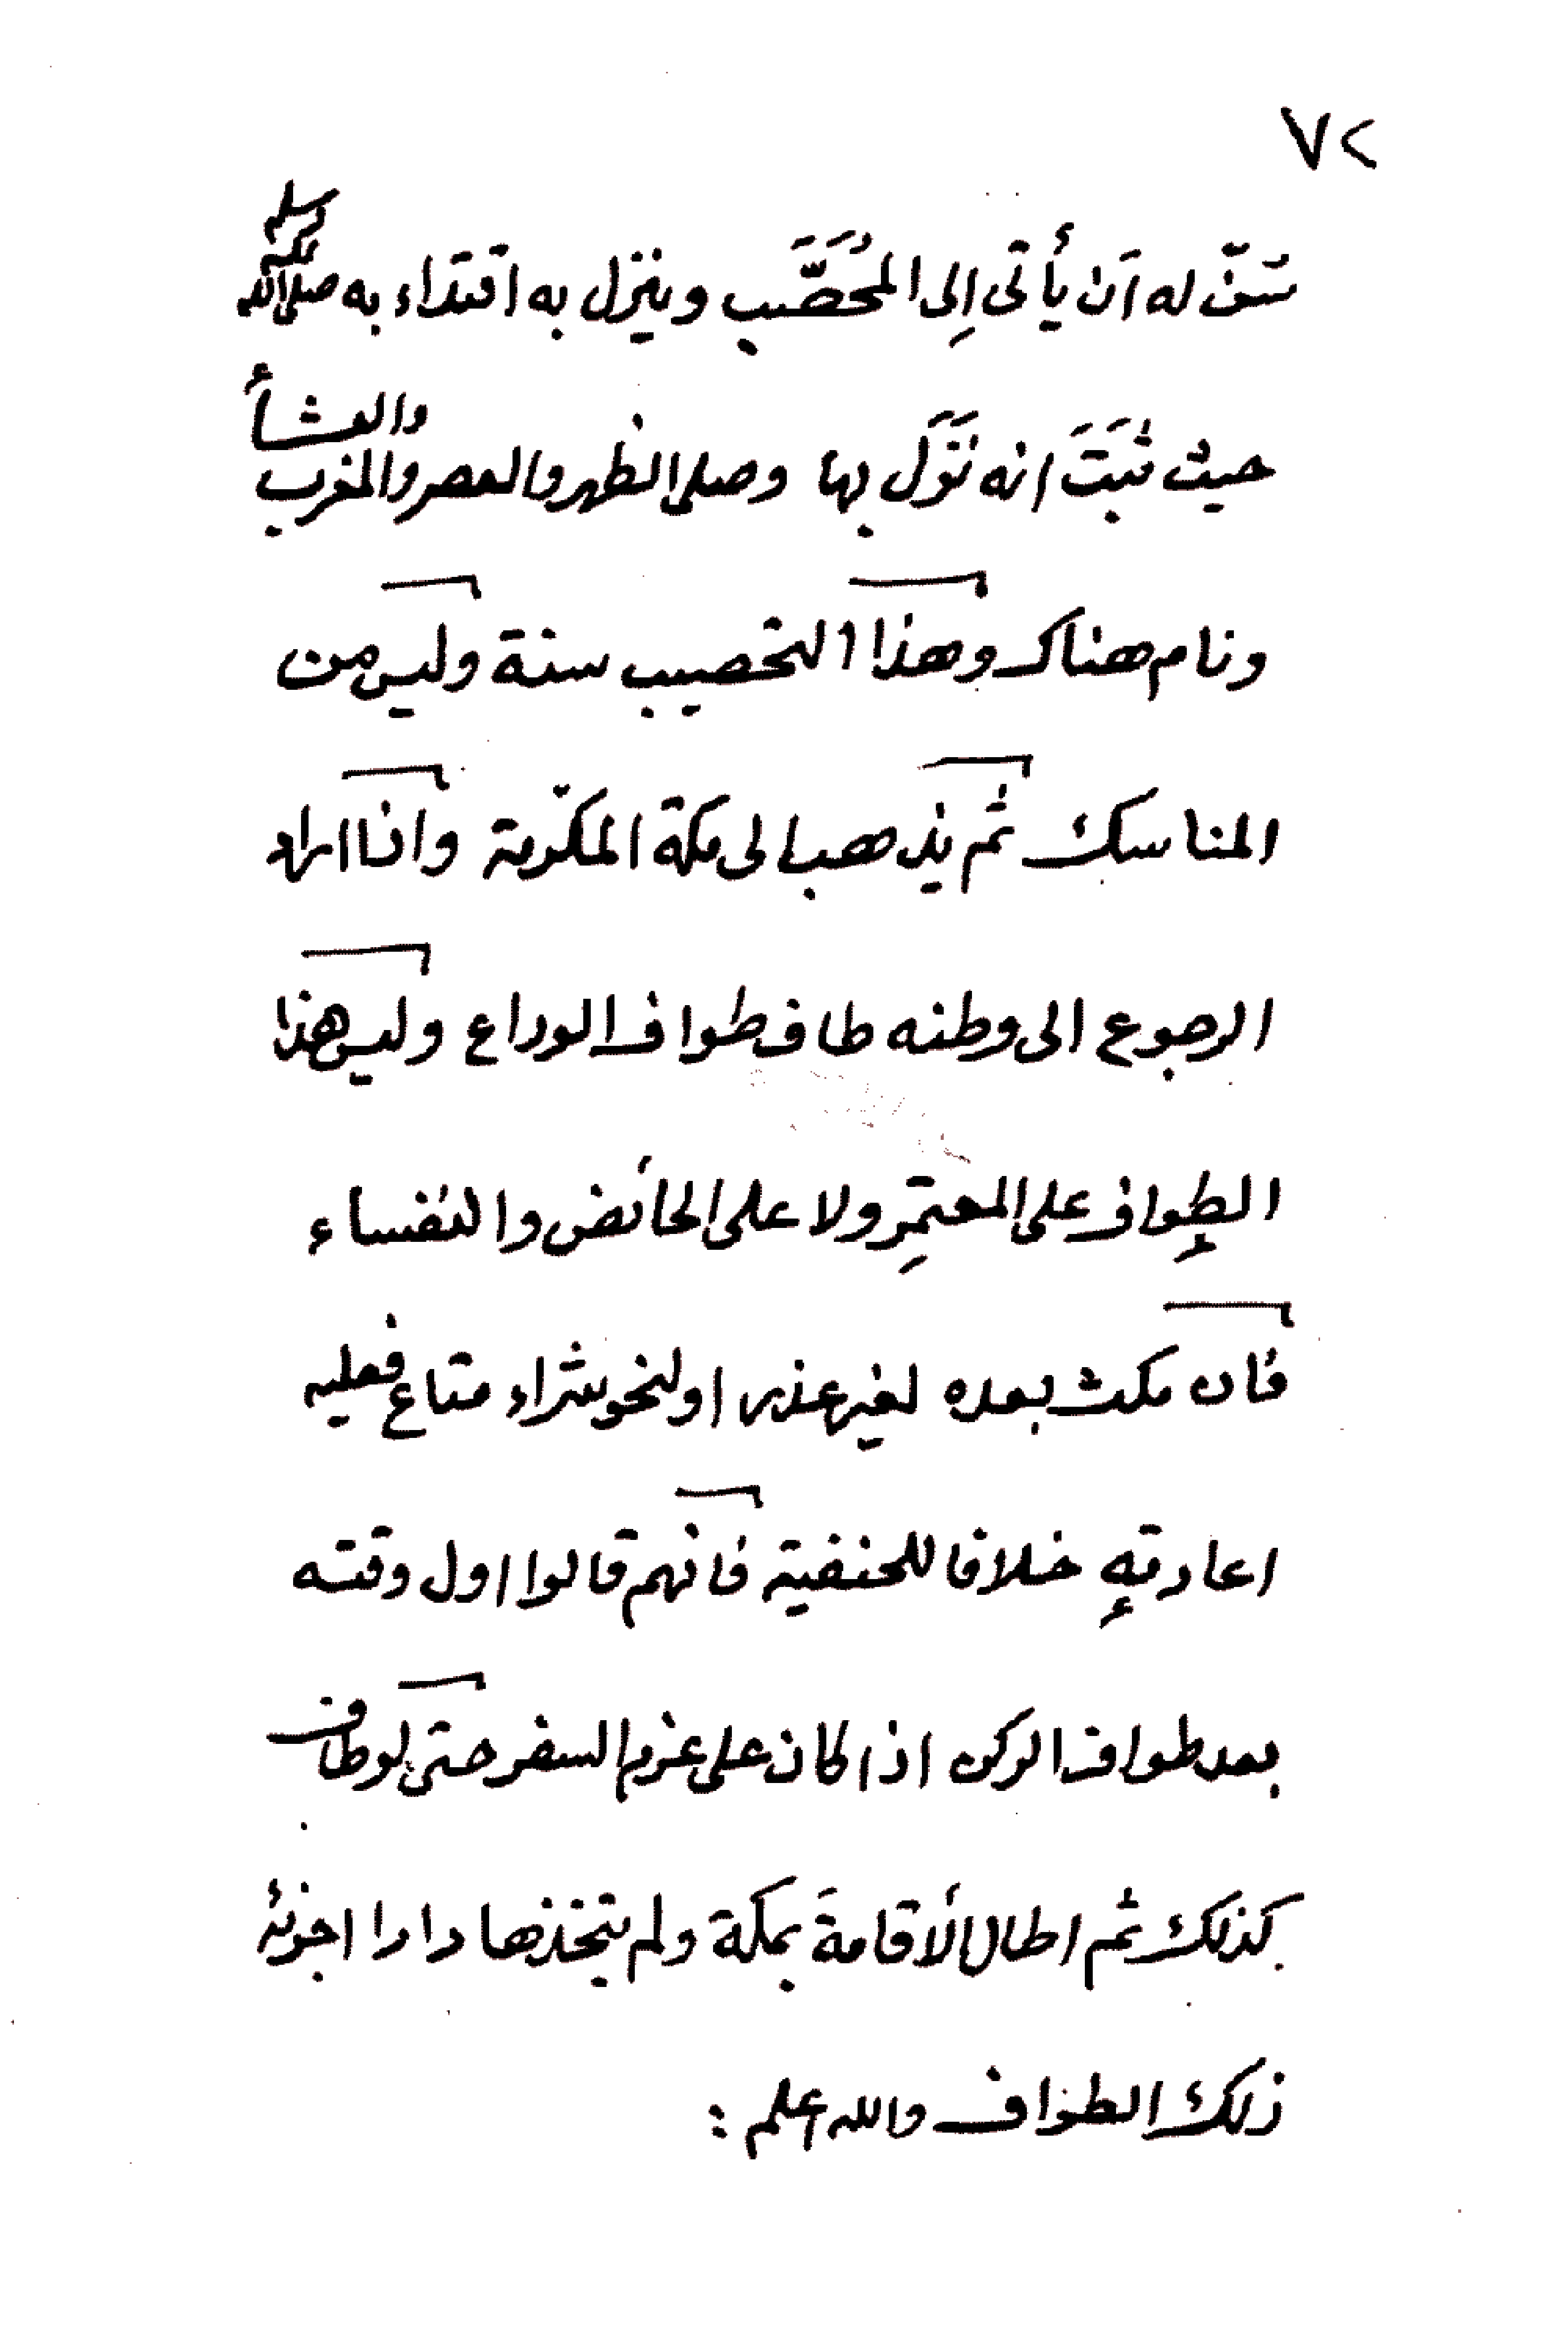 ٧٢
سَنّ له ان يأتى إلى المُحَصَّب وينزل به اقتداء به صلى الله عليه وسلم
حيث ثبَتَ انه نَزَلَ بها وصلى الظهر والعصر والمغرب والعشأ
ونام هناك وهذا التحصيب سنة وليس من
المناسك ثم يذهب الى مكة المكرّمة وانا اراد
الرجوع الى وطنه طاف طواف الوداع وليس هذا
الطواف على المعتمِر ولا على الحائض والنفساء
فان مكث بعده لغير عذر او لنحو شراء متاع فعليه
اعادته خلافا للحنفية فانهم قالوا اول وقته
بعد طواف الركن اذا كان على عزم السفر حتى لو طاف
كذلك ثم اطال الأقامةَ بمكة ولم يتخذها دارا اجزئه
ذلك الطواف والله اعلم :